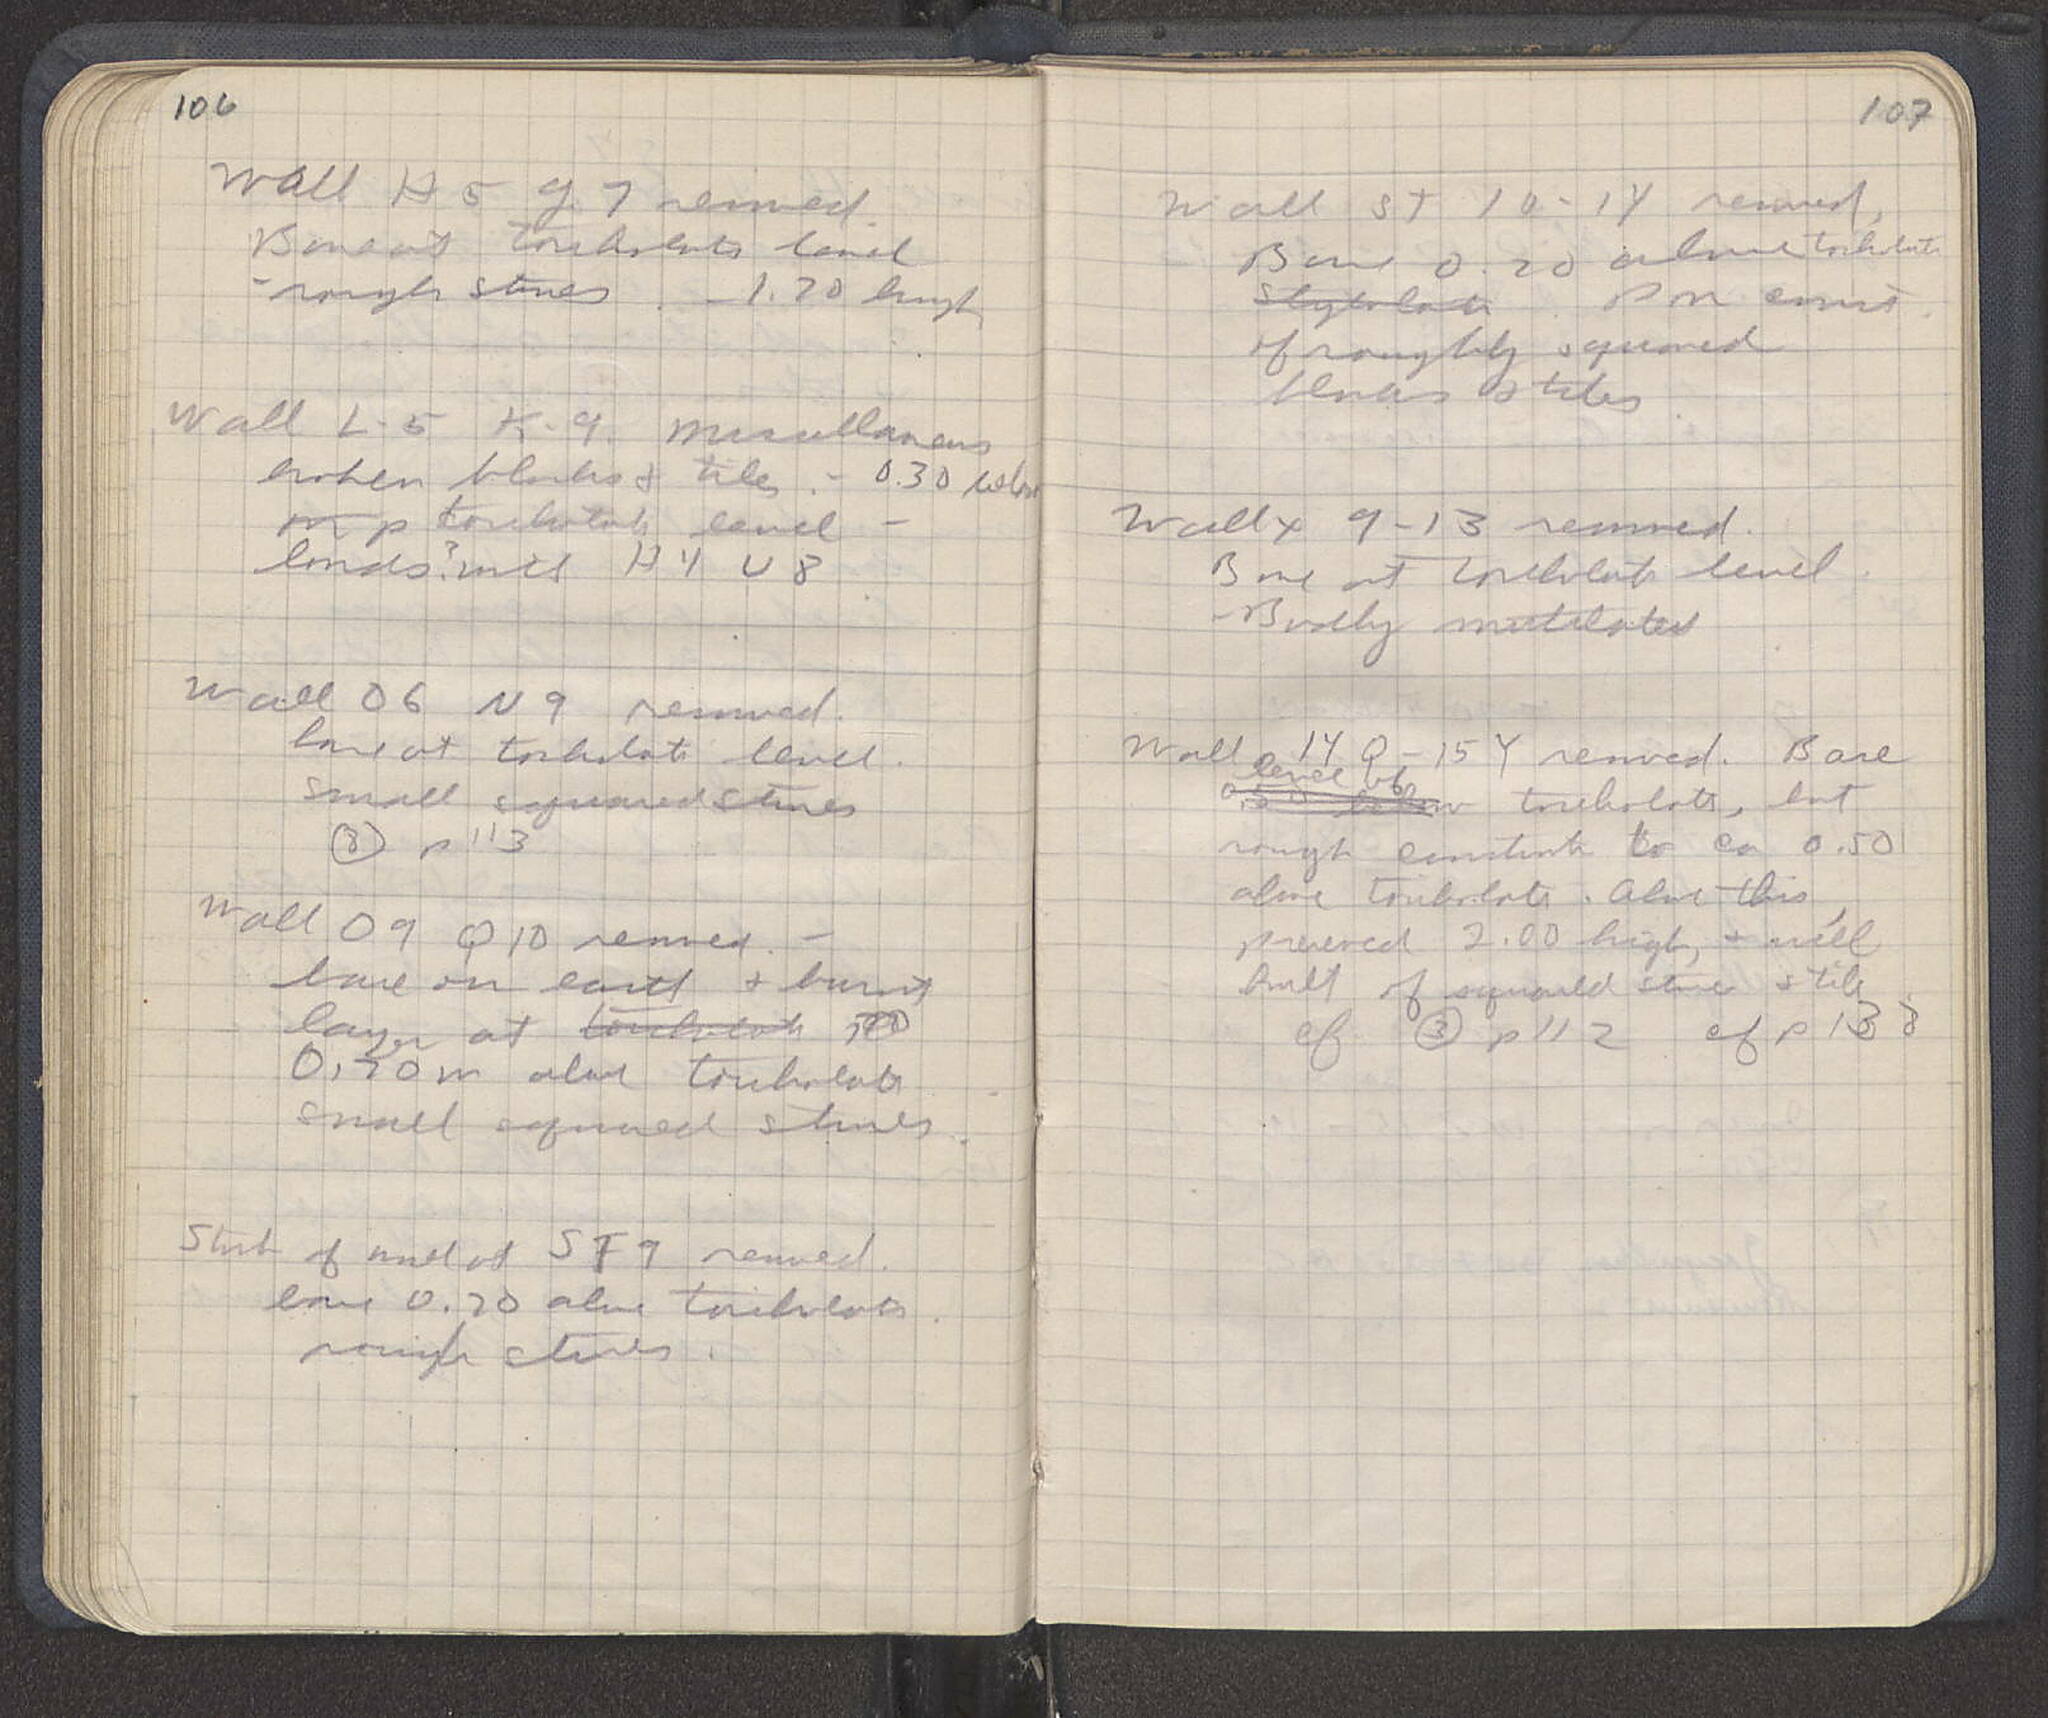 106
Wall H 5 J. 7 removed.
Base at toichobate level
- rough stones. - 1.20 high
Wall L-5 K-9. miscellaneous
broken blocks & tiles. - 0.30 below
toichobate level -
bonds? with H 4 U 8
Wall O6 N 9 removed.
base at toichobate level.
small squared stones
③ p 113
Wall O9 Q10 removed. -
base on earth & burnt
layer at toichobate
0.70 m above toichobate
small squared stones.
Stub of wall at ST 9 removed.
base 0.20 above toichobate.
rough stones.
107
Wall ST 10-14 removed,
Base 0.20 above toichobate
stylobate.
of roughly squared
blocks & tiles.
Wall X 9-13 removed.
Base at toichobate level.
- Badly mutilated
Wall 14 Q - 15 Y removed. Base
level
below toichobate, but
rough construct. to ca 0.50
above toichobate. Above this,
preserved 2.00 high, & well
built of squared stones & tile.
cf ③ p 112 cf p 138